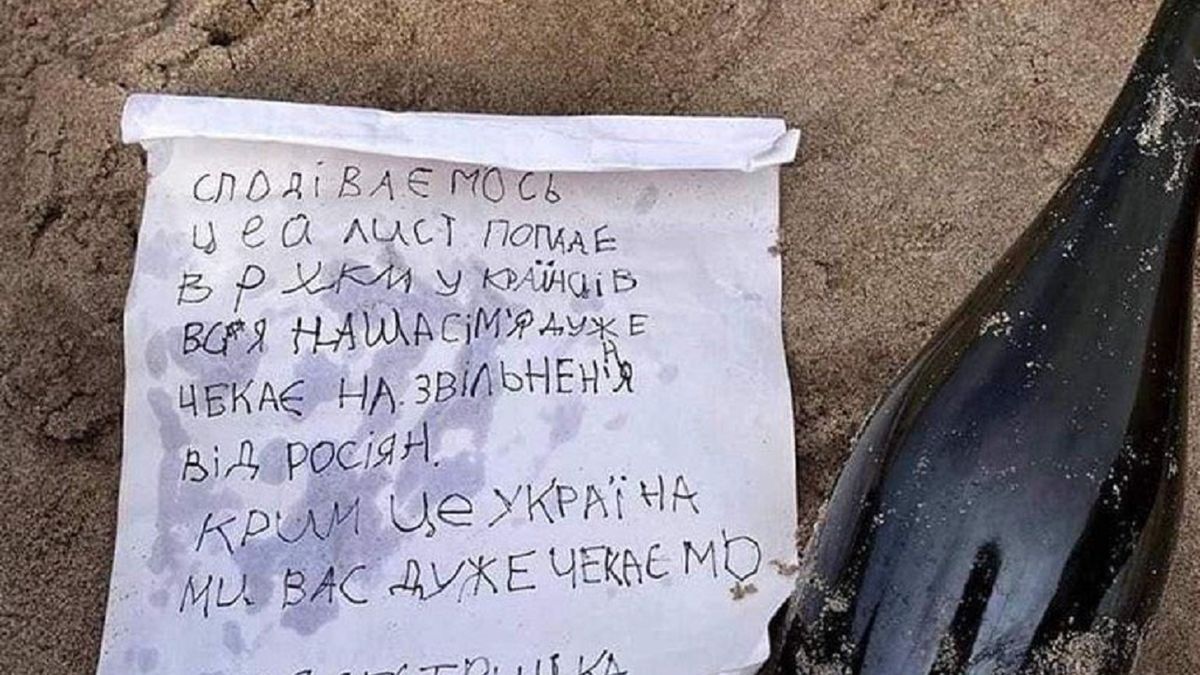 СПОДІВАЄМОСЬ
ЦЕЙ ЛИСТ ПОПАДЕ
В РУКИ УКРАЇНЦІВ
ВСЯ НАША СІМ'Я ДУЖЕ
ЧЕКАЄ НА ЗВІЛЬНЕННЯ
ВІД РОСІЯН.
КРИМ ЦЕ УКРАЇНА
МИ ВАС ДУЖЕ ЧЕКАЄМО